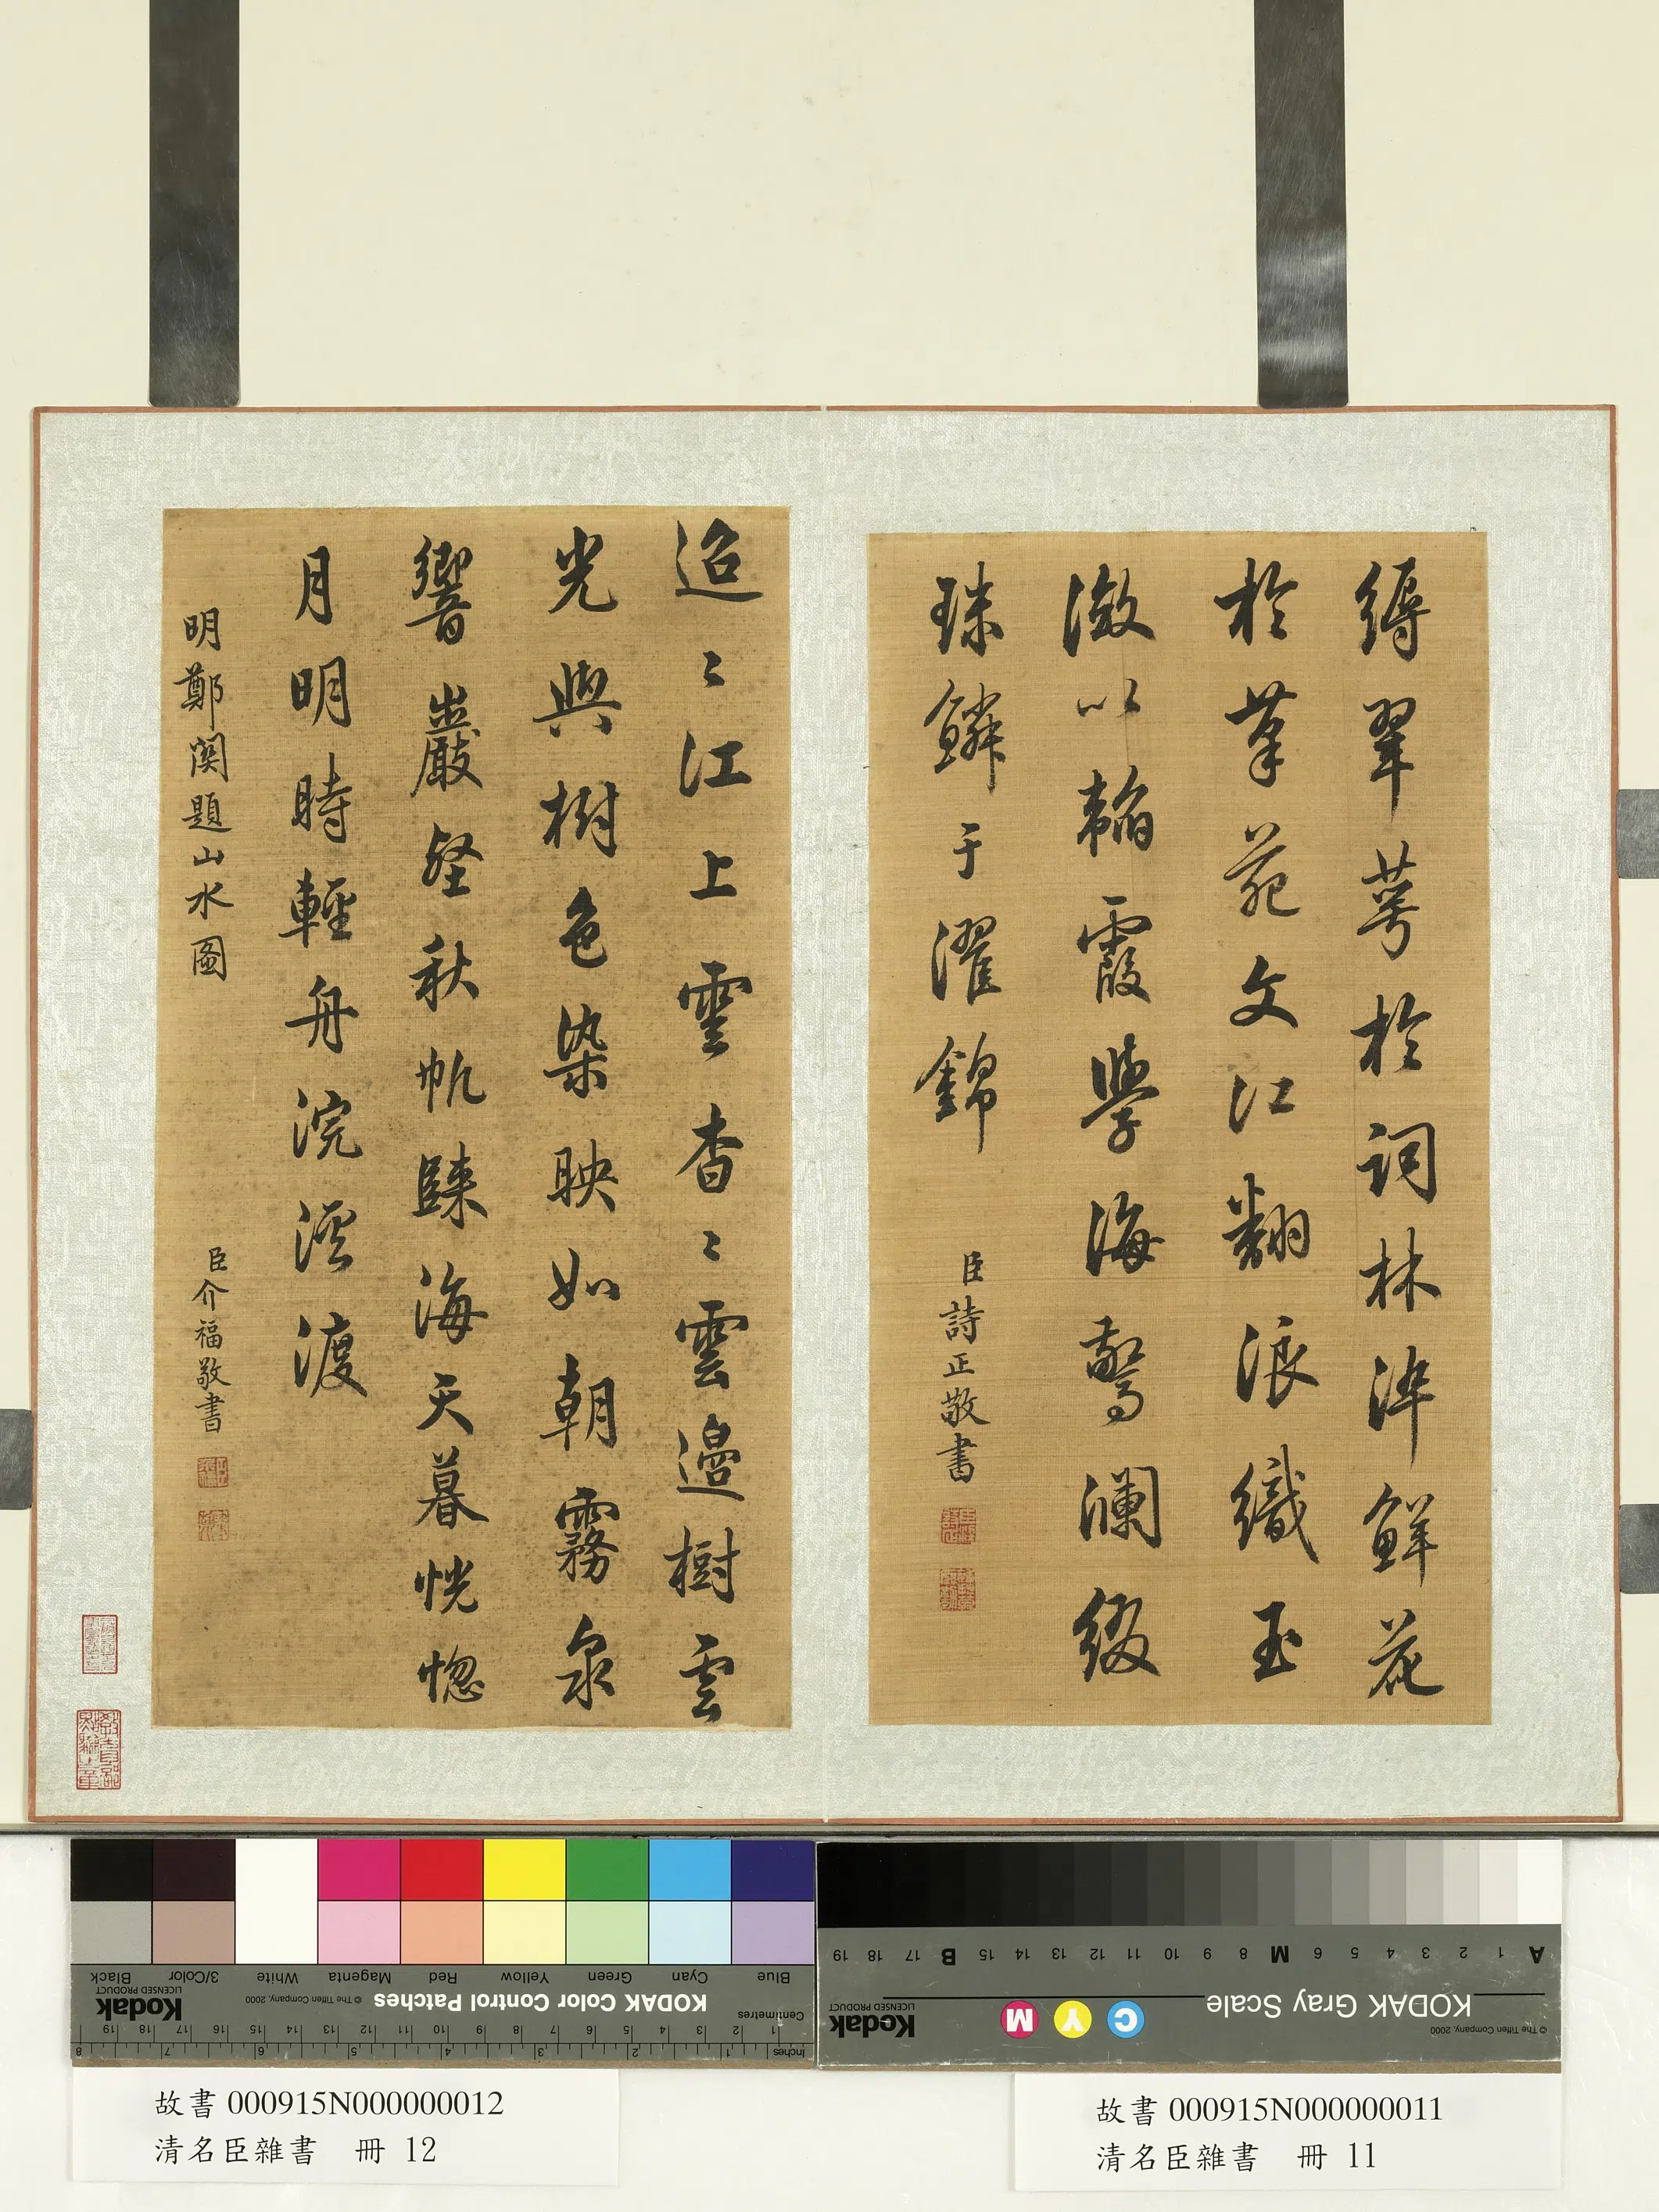 縟翠萼於詞林綷鮮花
於筆苑文江翻浪織玉
澂以韜霞學海驚瀾綴
珠鱗于濯錦
臣詩正敬書
迢〻江上雲杳〻雲邊樹雲
光與樹色染映如朝霧泉
響巖壑秋帆歸海天暮恍惚
月明時輕舟浣溪渡
明鄭関題山水圖
臣介福敬書
Blue Cyan Green Yellow Red Magenta White 3/Color Black
KODAK Color Control Patches © The Tiffen Company, 2000 Kodak LICENSED PRODUCT
Centimetres 1 2 3 4 5 6 7 8 9 10 11 12 13 14 15 16 17 18 19
Inches 1 2 3 4 5 6 7 8
A 1 2 3 4 5 6 M 8 9 10 11 12 13 14 15 B 17 18 19
KODAK Gray Scale C Y M Kodak LICENSED PRODUCT
© The Tiffen Company, 2000
故書 000915N000000012
清名臣雜書 冊 12
故書 000915N000000011
清名臣雜書 冊 11